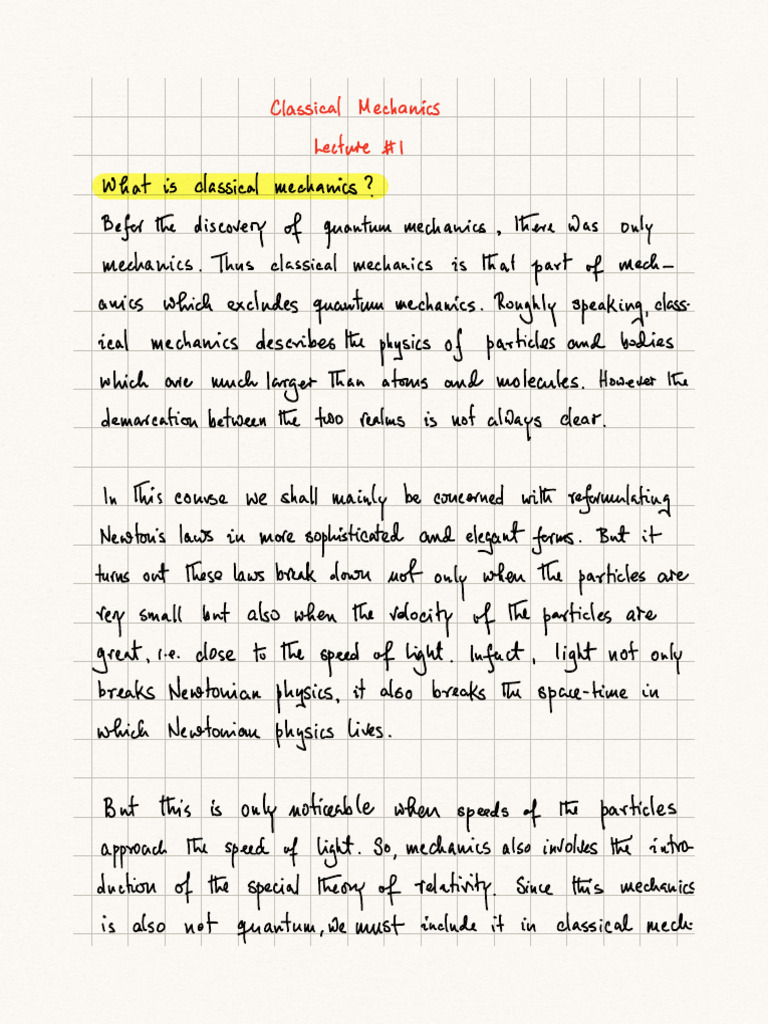 Classical Mechanics
Lecture #1
What is classical mechanics?
Befor the discovery of quantum mechanics, there was only
mechanics. Thus classical mechanics is that part of mech-
anics which excludes quantum mechanics. Roughly speaking, class-
ical mechanics describes the physics of particles and bodies
which are much larger than atoms and molecules. However the
demarcation between the two realms is not always clear.
In this course we shall mainly be concerned with reformulating
Newton's laws in more sophisticated and elegant forms. But it
turns out these laws break down not only when the particles are
very small but also when the velocity of the particles are
great, i.e. close to the speed of light. Infact, light not only
breaks Newtonian physics, it also breaks the space-time in
which Newtonian physics lives.
But this is only noticeable when speeds of the particles
approach the speed of light. So, mechanics also involves the intro-
duction of the special theory of relativity. Since this mechanics
is also not quantum, we must include it in classical mech-